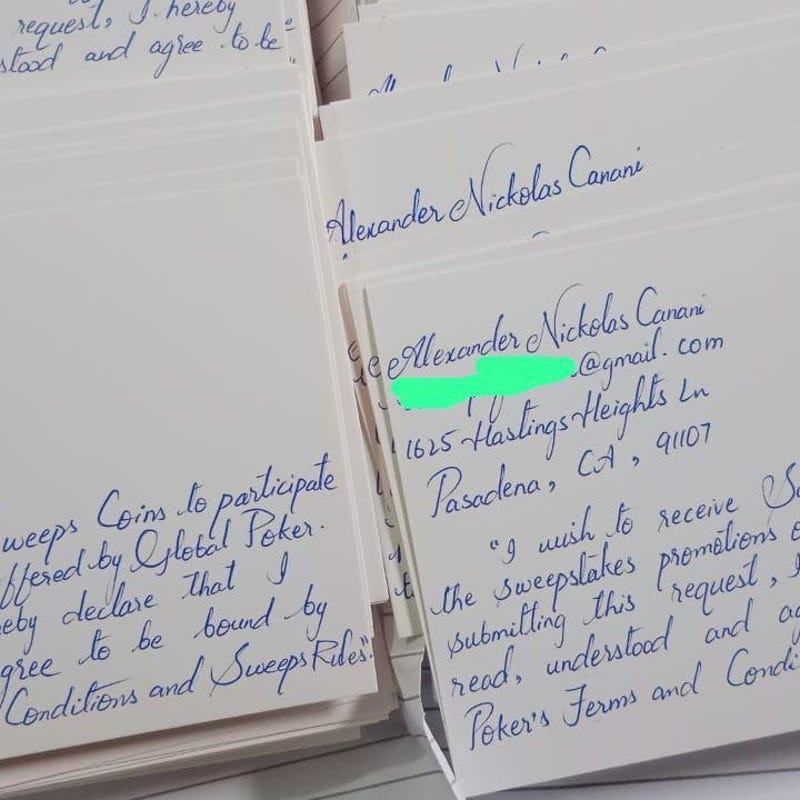 request, I hereby
stood and agree to be
Alexander Nickolas Canani
Alexander Nickolas Canani
@gmail.com
1625 Hastings Heights Ln
Pasadena, CA, 91107
"I wish to receive
the sweepstakes promotions
submitting this request, I
read, understood and
Poker's Terms and
weeps Coins to participate
ffered by Global Poker.
eby declare that I
gree to be bound by
Conditions and Sweeps Rules".